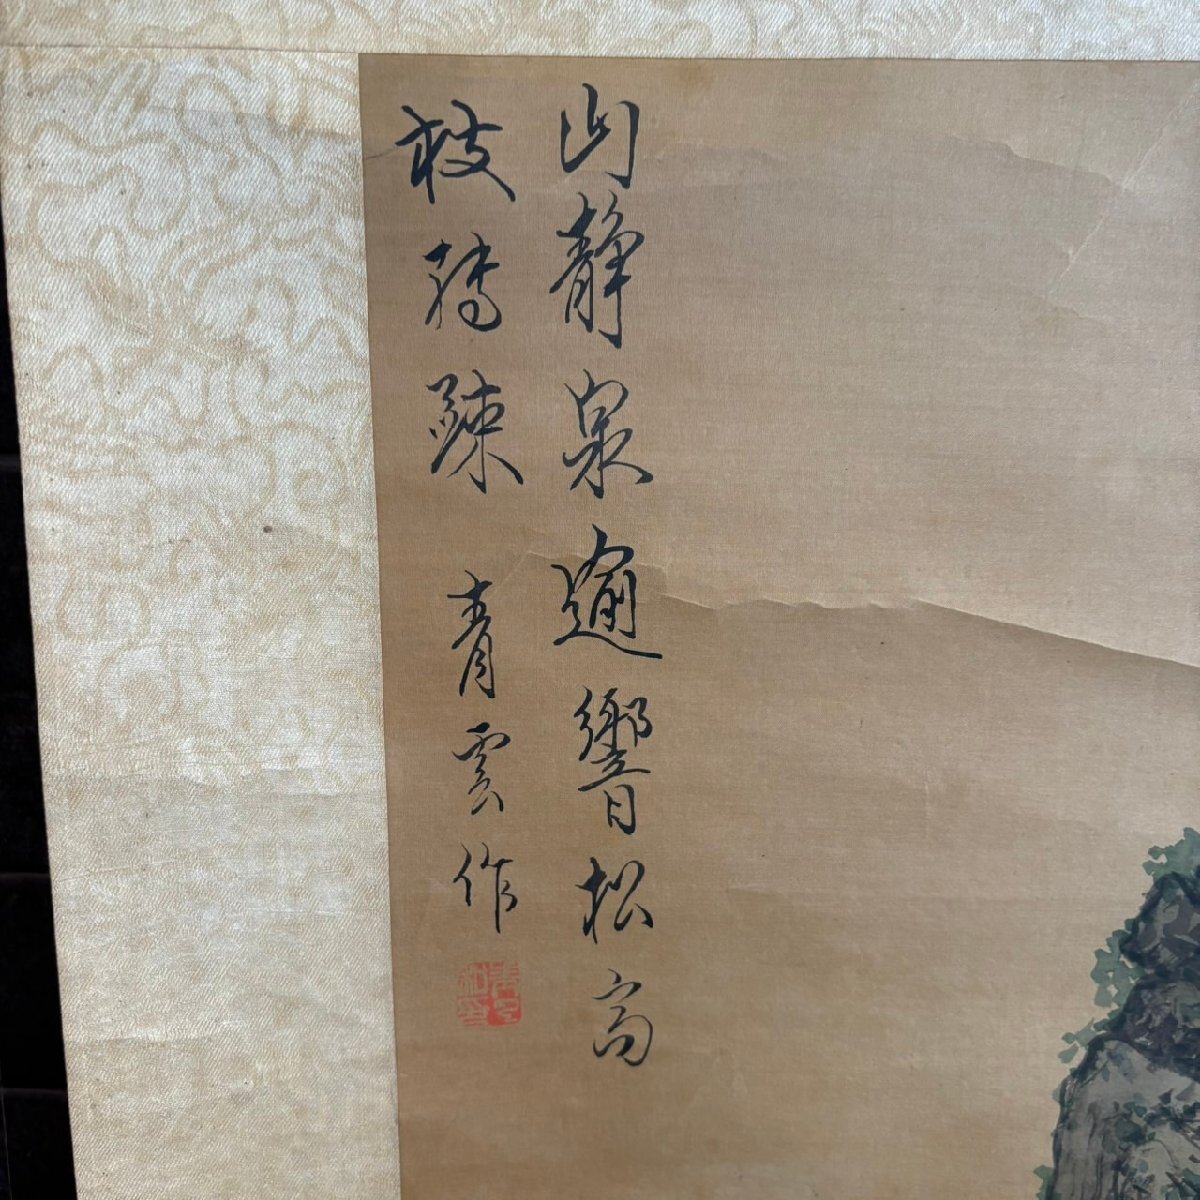 山静泉逾響松高
枝轉疎 青雲作